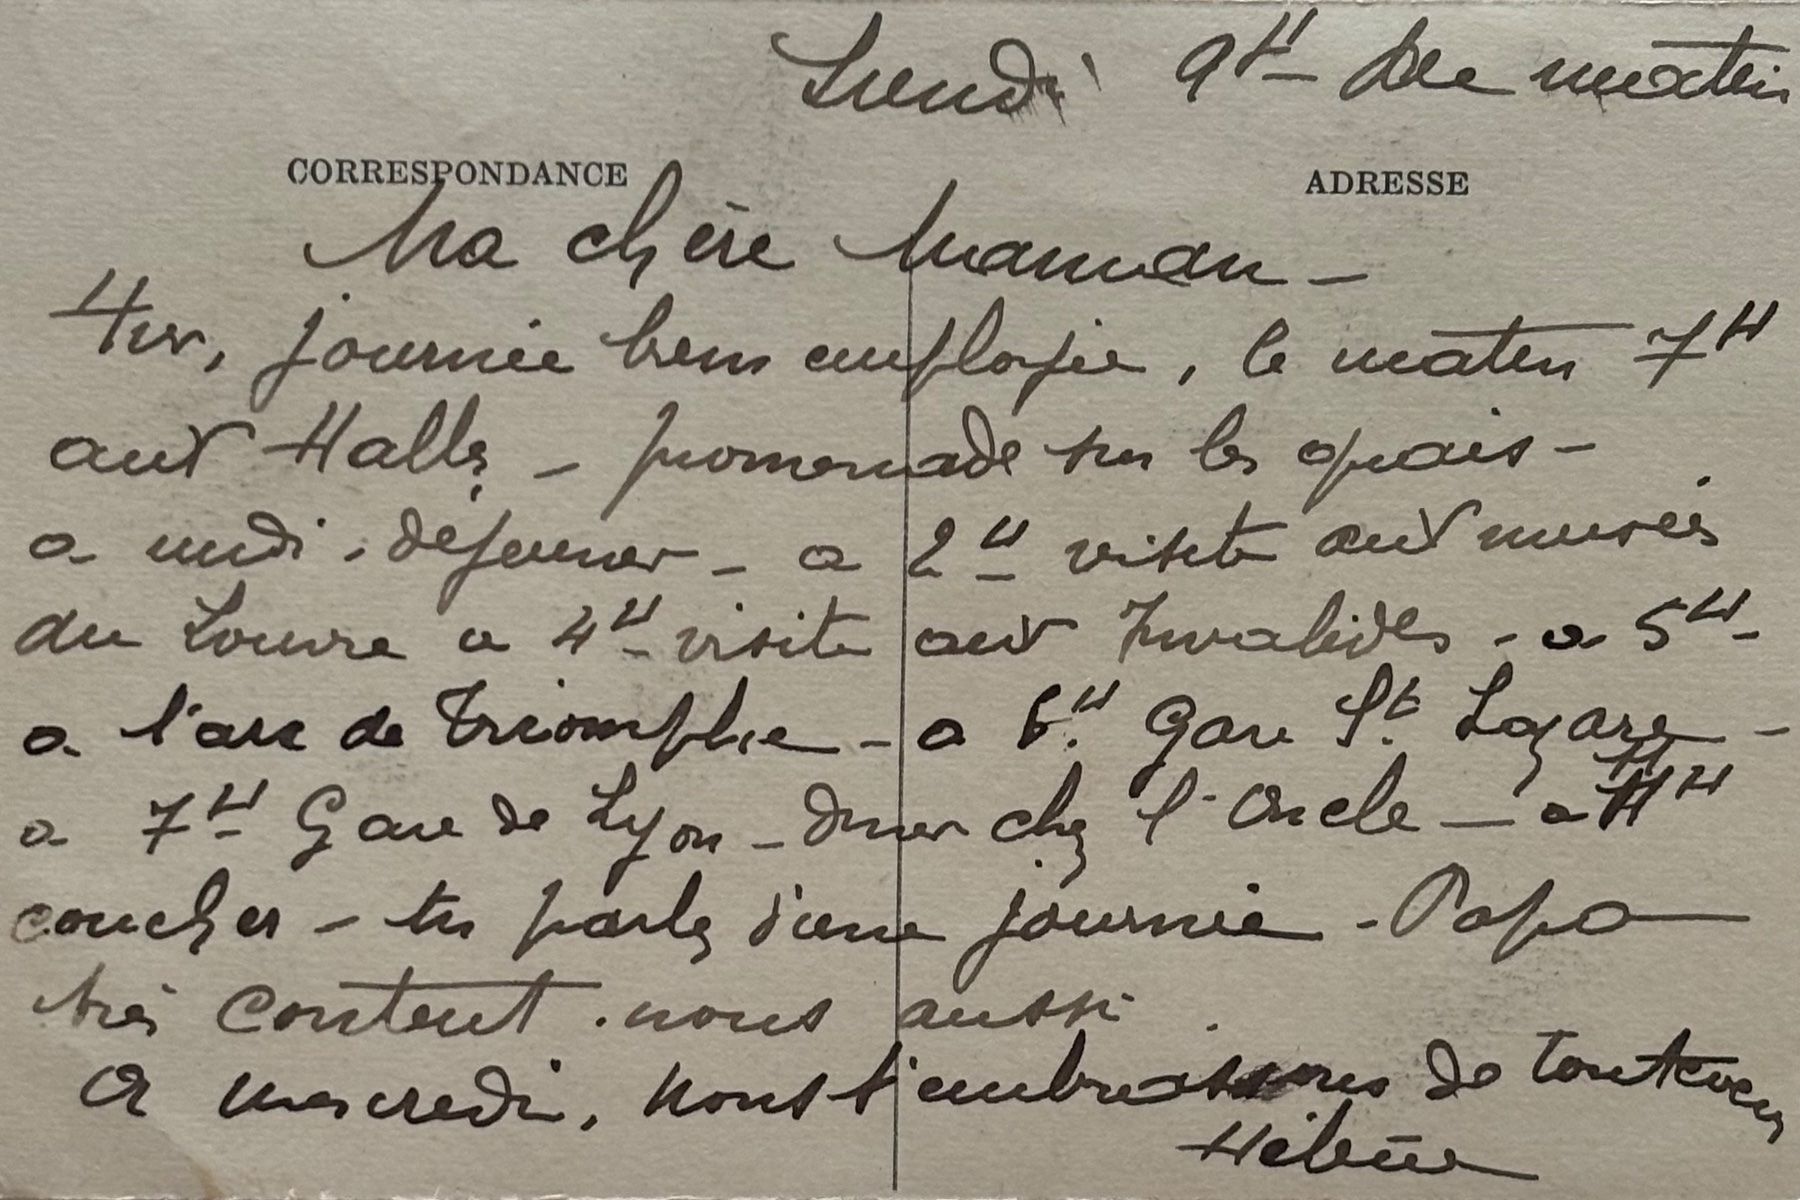 Lundi 9H du matin
CORRESPONDANCE
ADRESSE
Ma chère Maman -
Hier, journée bien employée, le matin 7H
aux Halles - promenade sur les quais -
a midi - déjeuner - a 2H visite aux musées
du Louvre a 4H - visite aux Invalides - a 5H -
a l'arc de Triomphe - a 6H. Gare St. Lazare -
a 7H Gare de Lyon - diner chez l'Oncle - a 11H
coucher - tu parles d'une journée - Papa
très content. nous aussi.
A mercredi, nous t'embrassons de tout cœur
Hélène